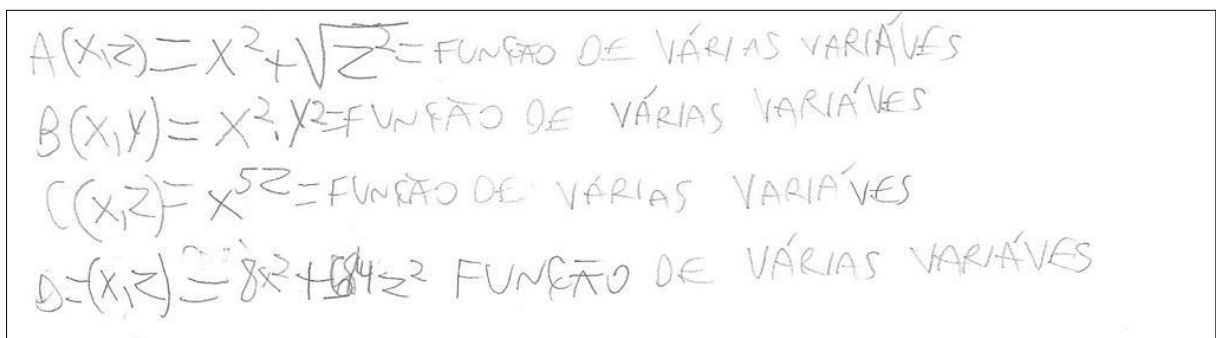 A(X,Z)=X²+√Z²=FUNÇÃO DE VÁRIAS VARIÁVES
B(X,Y)=X².Y²=FUNÇÃO DE VÁRIAS VARIÁVES
C(X,Z)=X^5Z=FUNÇÃO DE VÁRIAS VARIÁVES
D=(X,Z)=8X²+684Z² FUNÇÃO DE VÁRIAS VARIÁVES